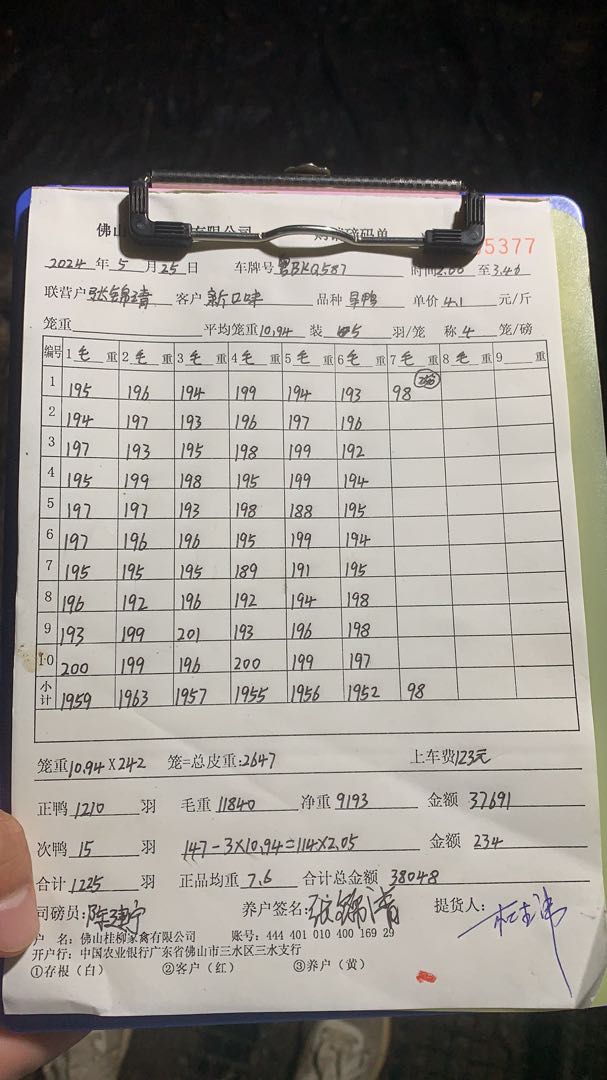 佛山 有限公司 购销磅码单 5377
2024年5月25日 车牌号粤BKQ587 时间2:00至3:40
联营户张锦清 客户新口味 品种旱鸭 单价4.1元/斤
笼重 平均笼重10.94 装5羽/笼 称4笼/磅
编号 1毛重 2毛重 3毛重 4毛重 5毛重 6毛重 7毛重 8毛重 9重
1 195 196 194 199 194 193 98
2 194 197 193 196 197 196
3 197 193 195 198 199 192
4 195 199 198 195 199 194
5 197 197 193 198 188 195
6 197 196 196 195 199 194
7 195 195 195 189 191 195
8 196 192 196 192 194 198
9 193 199 201 193 196 198
10 200 199 196 200 199 197
小计 1959 1963 1957 1955 1956 1952 98
笼重10.94×242 笼=总皮重:2647 上车费123元
正鸭1210羽 毛重11840 净重9193 金额37691
次鸭15羽 147-3×10.94=114×2.05 金额234
合计1225羽 正品均重7.6 合计总金额38048
司磅员: 养户签名:张锦清 提货人:
户 名:佛山桂柳家禽有限公司 账号:444 401 010 400 169 29
开户行:中国农业银行广东省佛山市三水区三水支行
①存根（白） ②客户（红） ③养户（黄）